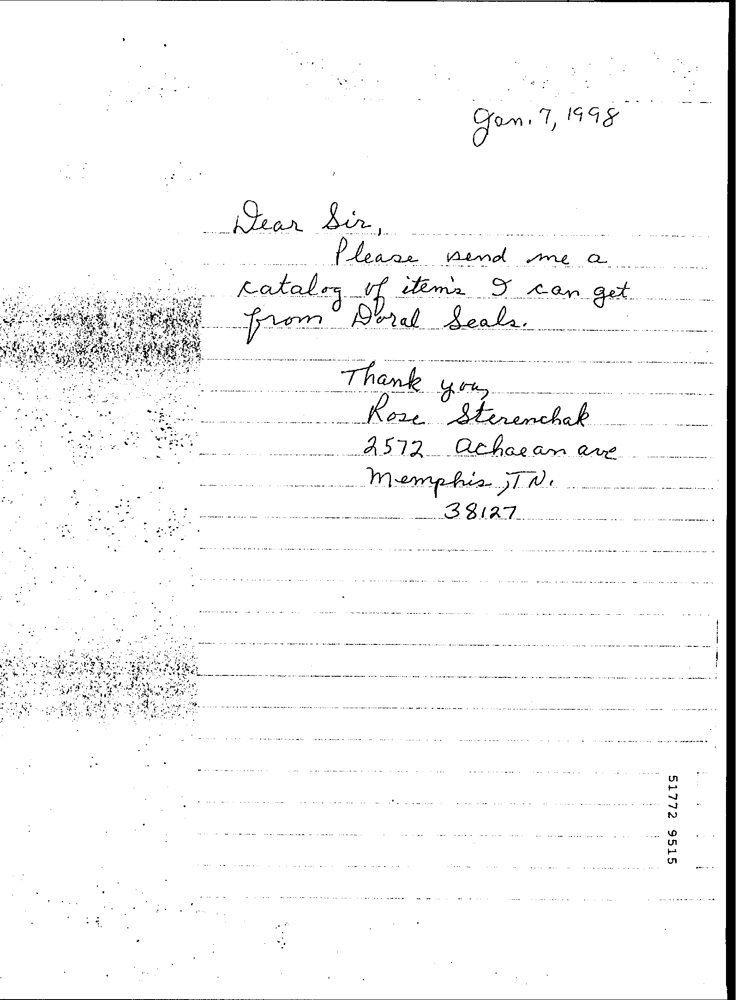 Jan. 7, 1998
Dear Sir,
Please send me a
catalog of item's I can get
from Doral Seals.
Thank you,
Rose Sterenchak
2572 Achaean ave
Memphis, TN.
38127
51772 9515